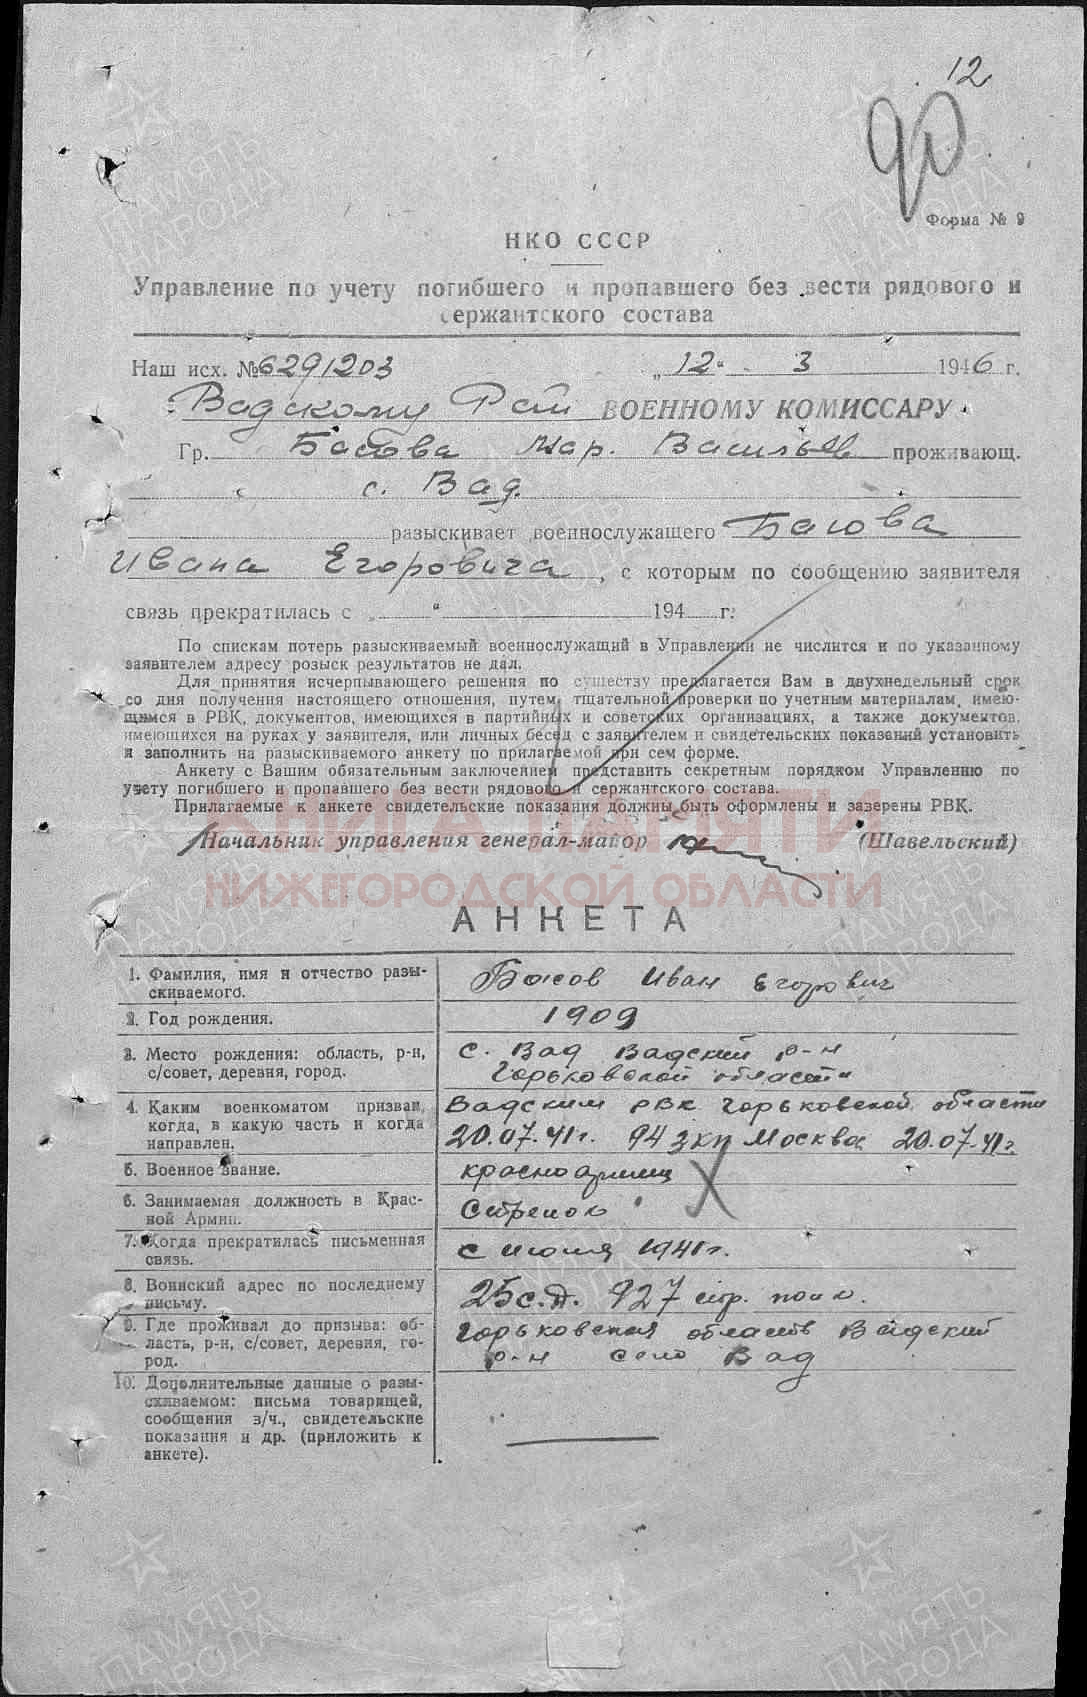 12
90
Форма № 9
НКО СССР
Управление по учету погибшего и пропавшего без вести рядового и
сержантского состава
Наш исх. № 6291203 „12“ 3 1946 г.
Вадскому Рай ВОЕННОМУ КОМИССАРУ
Гр. Басова Мар. Васильев проживающ.
с. Вад.
разыскивает военнослужащего Басова
Ивана Егоровича, с которым по сообщению заявителя
связь прекратилась с „ “ 194 г.
По спискам потерь разыскиваемый военнослужащий в Управлении не числится и по указанному
заявителем адресу розыск результатов не дал.
Для принятия исчерпывающего решения по существу предлагается Вам в двухнедельный срок
со дня получения настоящего отношения, путем тщательной проверки по учетным материалам, имею-
щимся в РВК, документов, имеющихся в партийных и советских организациях, а также документов,
имеющихся на руках у заявителя, или личных бесед с заявителем и свидетельских показаний установить
и заполнить на разыскиваемого анкету по прилагаемой при сем форме.
Анкету с Вашим обязательным заключением представить секретным порядком Управлению по
учету погибшего и пропавшего без вести рядового и сержантского состава.
Прилагаемые к анкете свидетельские показания должны быть оформлены и заверены РВК.
КНИГА ПАМЯТИ
Начальник управления генерал-майор (Шавельский)
НИЖЕГОРОДСКОЙ ОБЛАСТИ
АНКЕТА
1. Фамилия, имя и отчество разы-
скиваемого.
Басов Иван Егорович
2. Год рождения.
1909
3. Место рождения: область, р-н,
с/совет, деревня, город.
с. Вад Вадский р-н
Горьковской области
4. Каким военкоматом призван,
когда, в какую часть и когда
направлен.
Вадским РВК Горьковской области
20.07.41г. 94 зкп Москва 20.07.41г.
5. Военное звание.
красноармеец
6. Занимаемая должность в Крас-
ной Армии.
Стрелок
7. Когда прекратилась письменная
связь.
с июля 1941г.
8. Воинский адрес по последнему
письму.
25 с.д. 927 стр. полк.
9. Где проживал до призыва: об-
ласть, р-н, с/совет, деревня, го-
род.
Горьковская область Вадский
р-н село Вад
10. Дополнительные данные о разы-
скиваемом: письма товарищей,
сообщения в/ч., свидетельские
показания и др. (приложить к
анкете).
ПАМЯТЬ
НАРОДА